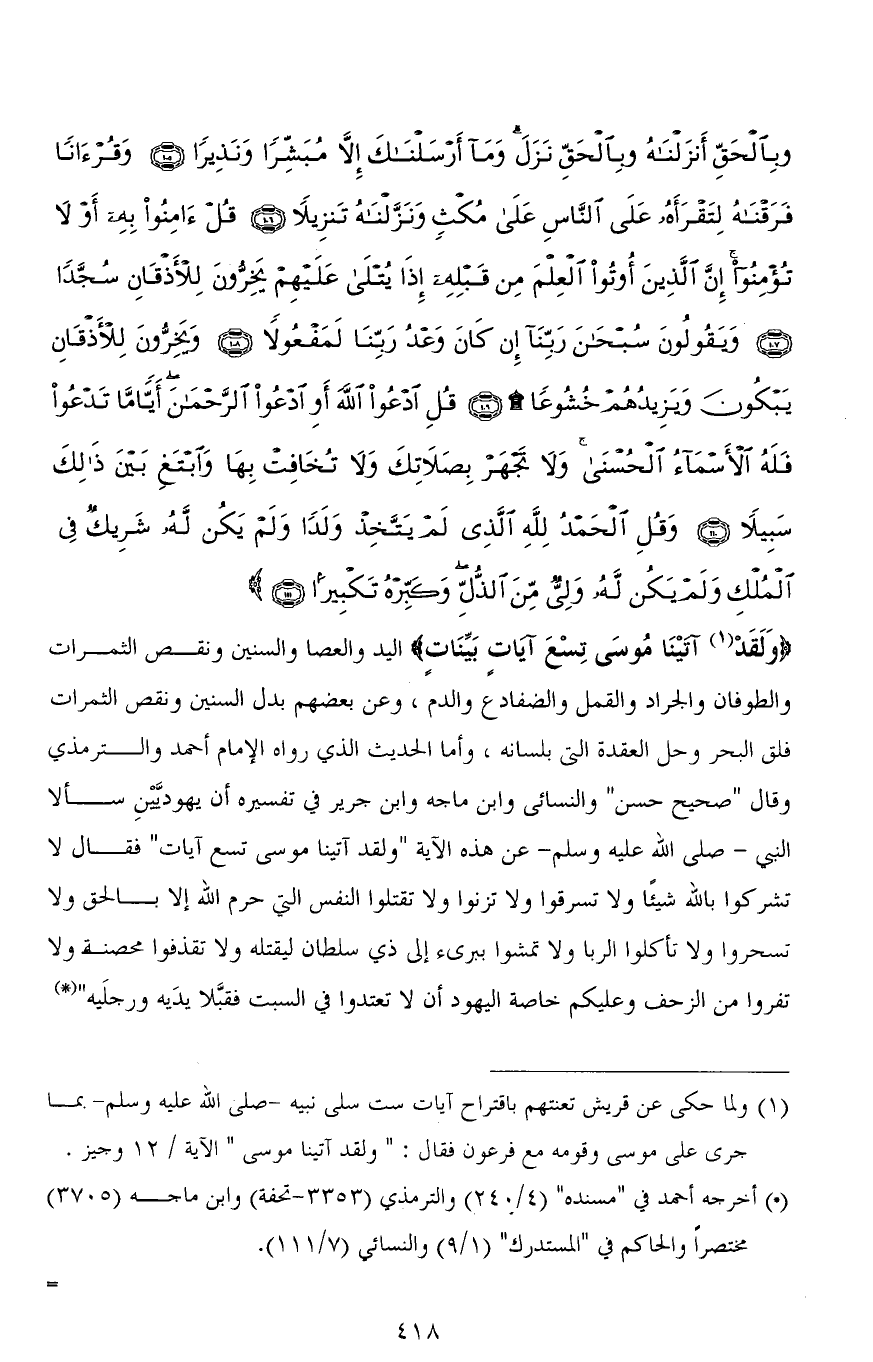 وَبِٱلْحَقِّ أَنزَلْنَـٰهُ وَبِٱلْحَقِّ نَزَلَ ۗ وَمَآ أَرْسَلْنَـٰكَ إِلَّا مُبَشِّرًا وَنَذِيرًا ١٠٥ وَقُرْءَانًا
فَرَقْنَـٰهُ لِتَقْرَأَهُۥ عَلَى ٱلنَّاسِ عَلَىٰ مُكْثٍ وَنَزَّلْنَـٰهُ تَنزِيلًا ١٠٦ قُلْ ءَامِنُوا۟ بِهِۦٓ أَوْ لَا
تُؤْمِنُوٓا۟ ۚ إِنَّ ٱلَّذِينَ أُوتُوا۟ ٱلْعِلْمَ مِن قَبْلِهِۦٓ إِذَا يُتْلَىٰ عَلَيْهِمْ يَخِرُّونَ لِلْأَذْقَانِ سُجَّدًا
١٠٧ وَيَقُولُونَ سُبْحَـٰنَ رَبِّنَآ إِن كَانَ وَعْدُ رَبِّنَا لَمَفْعُولًا ١٠٨ وَيَخِرُّونَ لِلْأَذْقَانِ
يَبْكُونَ وَيَزِيدُهُمْ خُشُوعًا ۩ ١٠٩ قُلِ ٱدْعُوا۟ ٱللَّهَ أَوِ ٱدْعُوا۟ ٱلرَّحْمَـٰنَ ۖ أَيًّا مَّا تَدْعُوا۟
فَلَهُ ٱلْأَسْمَآءُ ٱلْحُسْنَىٰ ۚ وَلَا تَجْهَرْ بِصَلَاتِكَ وَلَا تُخَافِتْ بِهَا وَٱبْتَغِ بَيْنَ ذَٰلِكَ
سَبِيلًا ١١٠ وَقُلِ ٱلْحَمْدُ لِلَّهِ ٱلَّذِى لَمْ يَتَّخِذْ وَلَدًا وَلَمْ يَكُن لَّهُۥ شَرِيكٌ فِى
ٱلْمُلْكِ وَلَمْ يَكُن لَّهُۥ وَلِىٌّ مِّنَ ٱلذُّلِّ ۖ وَكَبِّرْهُ تَكْبِيرًۢا ١١١ ﴾
﴿وَلَقَدْ(١) آتَيْنَا مُوسَى تِسْعَ آيَاتٍ بَيِّنَاتٍ﴾ اليد والعصا والسنين ونقص الثمرات
والطوفان والجراد والقمل والضفادع والدم ، وعن بعضهم بدل السنين ونقص الثمرات
فلق البحر وحل العقدة التى بلسانه ، وأما الحديث الذي رواه الإمام أحمد والترمذي
وقال "صحيح حسن" والنسائى وابن ماجه وابن جرير في تفسيره أن يهوديَّيْنِ سألا
النبي - صلى الله عليه وسلم- عن هذه الآية "ولقد آتينا موسى تسع آيات" فقال لا
تشركوا بالله شيئًا ولا تسرقوا ولا تزنوا ولا تقتلوا النفس التي حرم الله إلا بالحق ولا
تسحروا ولا تأكلوا الربا ولا تمشوا ببرىء إلى ذي سلطان ليقتله ولا تقذفوا محصنة ولا
تفروا من الزحف وعليكم خاصة اليهود أن لا تعتدوا في السبت فقبَّلا يدَيه ورجلَيه"(*)
(١) ولما حكى عن قريش تعنتهم باقتراح آيات ست سلى نبيه -صلى الله عليه وسلم- بما
جرى على موسى وقومه مع فرعون فقال : " ولقد آتينا موسى " الآية / ١٢ وجيز .
(*) أخرجه أحمد في "مسنده" (٢٤٠/٤) والترمذي (٣٣٥٣-تحفة) وابن ماجه (٣٧٠٥)
مختصراً والحاكم في "المستدرك" (٩/١) والنسائي (١١١/٧).
=
٤١٨